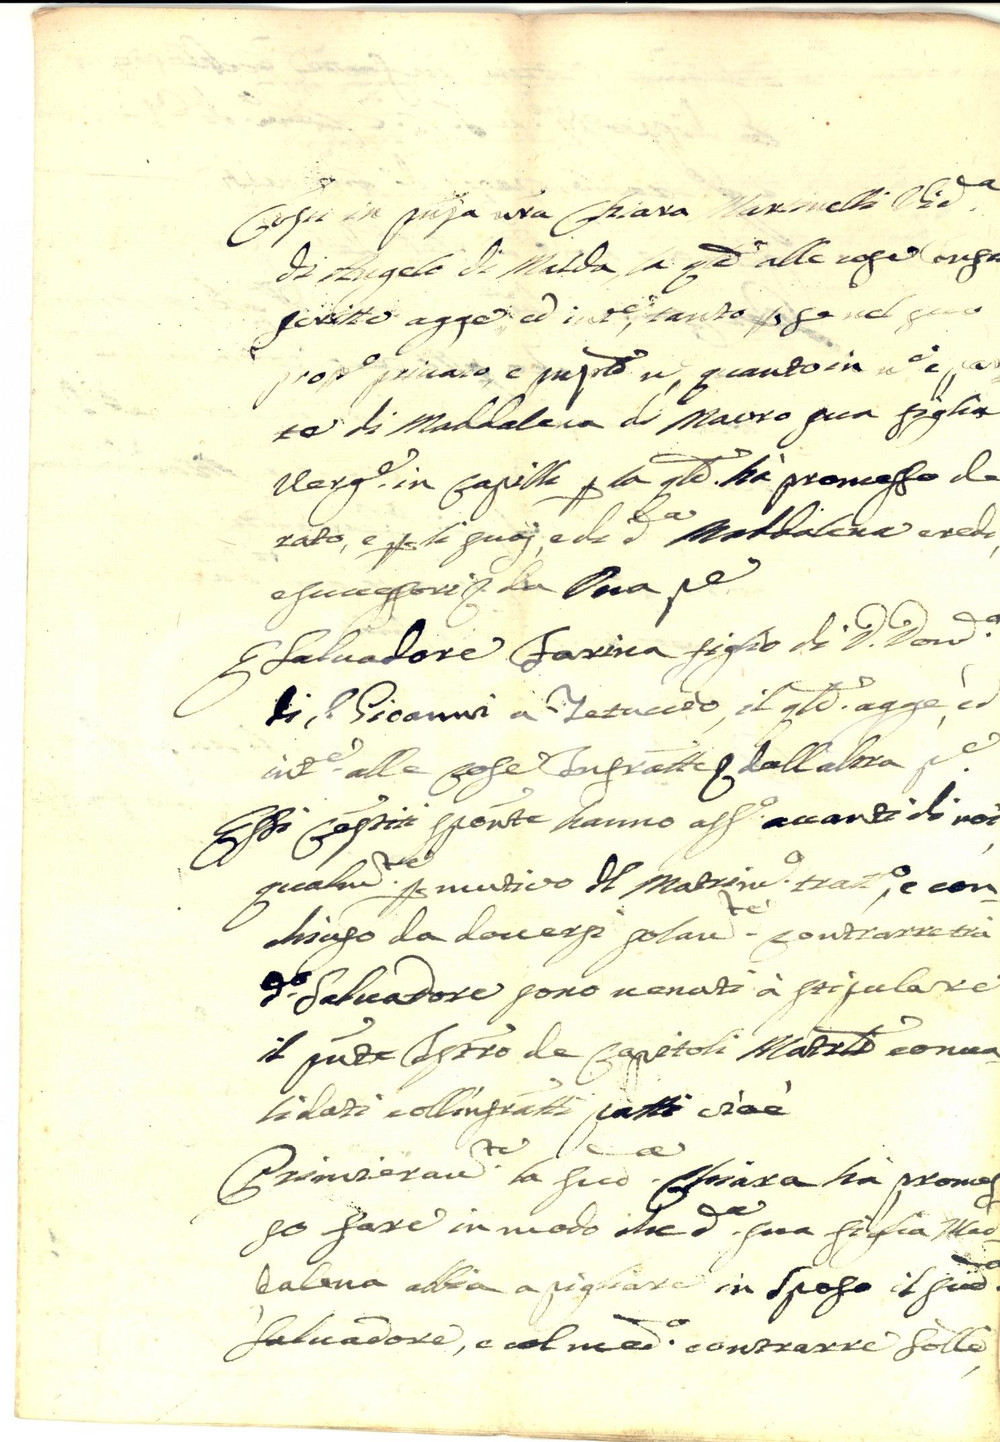 Cost.ti in pnza nra Chiara Marinelli Vid.a
di Angelo di la q.le alle cose infra
scritte agge, ed int.e, tanto p se nel suo
prop.o privato, e nome, quanto in n.e e par
te di Maddalena di Mauro sua figlia
Verg.e in capillis p la q.le hà promesso de
rato, e p li suoj, e di d.a Maddalena eredi,
e successori da una p.e
E Salvadore Farina figlio di D. Dom.o
di S. Gioanni a Teduccio, il q.le agge, ed
int.e alle cose infratte dall'altra p.e
Essi cost.ti sponte hanno ass.o avanti di noi
qualm.te p motivo del Matrim.o tratt.o, e con-
chiuso da doversi solam.te contrarre trà
d.o Salvadore sono venuti à stipulare
il pnte Istro de Capitoli Matrli conva
lidati coll'infratti patti cioè
Primieram.te la sud.a Chiara hà promes
so fare in modo che d.a sua figlia Mad-
dalena abbia a pigliare in sposo il sud.o
Salvadore, e col med.o contrarre